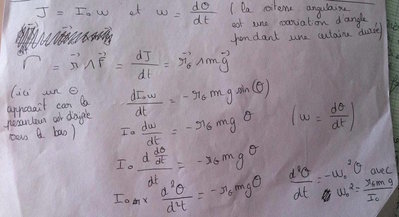 J = I₀ w et w = dθ/dt (la vitesse angulaire est une variation d'angle pendant une certaine durée)
Γ⃗ = r⃗ ∧ F⃗ = dJ⃗/dt = r⃗_G ∧ m g⃗
(ici un ⊖ apparaît car la pesanteur est dirigée vers le bas)
dI₀w/dt = - r_G m g sin(θ)
I₀ dw/dt = - r_G m g θ (w = dθ/dt)
I₀ d dθ/dt / dt = - r_G m g θ
I₀ × d²θ/d²t = - r_G m g θ d²θ/dt = - w₀² θ avec w₀² = r_G m g / I₀